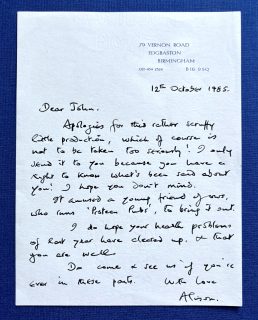 59 VERNON ROAD
EDGBASTON
BIRMINGHAM
B16 9SQ
12th October 1985.
Dear John,
Apologies for this rather scruffy
little production, which of course is
not to be taken too seriously! I only
send it to you because you have a
right to know what's been said about
you! I hope you don't mind.
It amused a young friend of ours,
who runs 'Protean Pubs', to bring it out.
I do hope your health problems
of last year have cleared up, & that
you are well.
Do come & see us if you're
ever in these parts. With love
Alison.